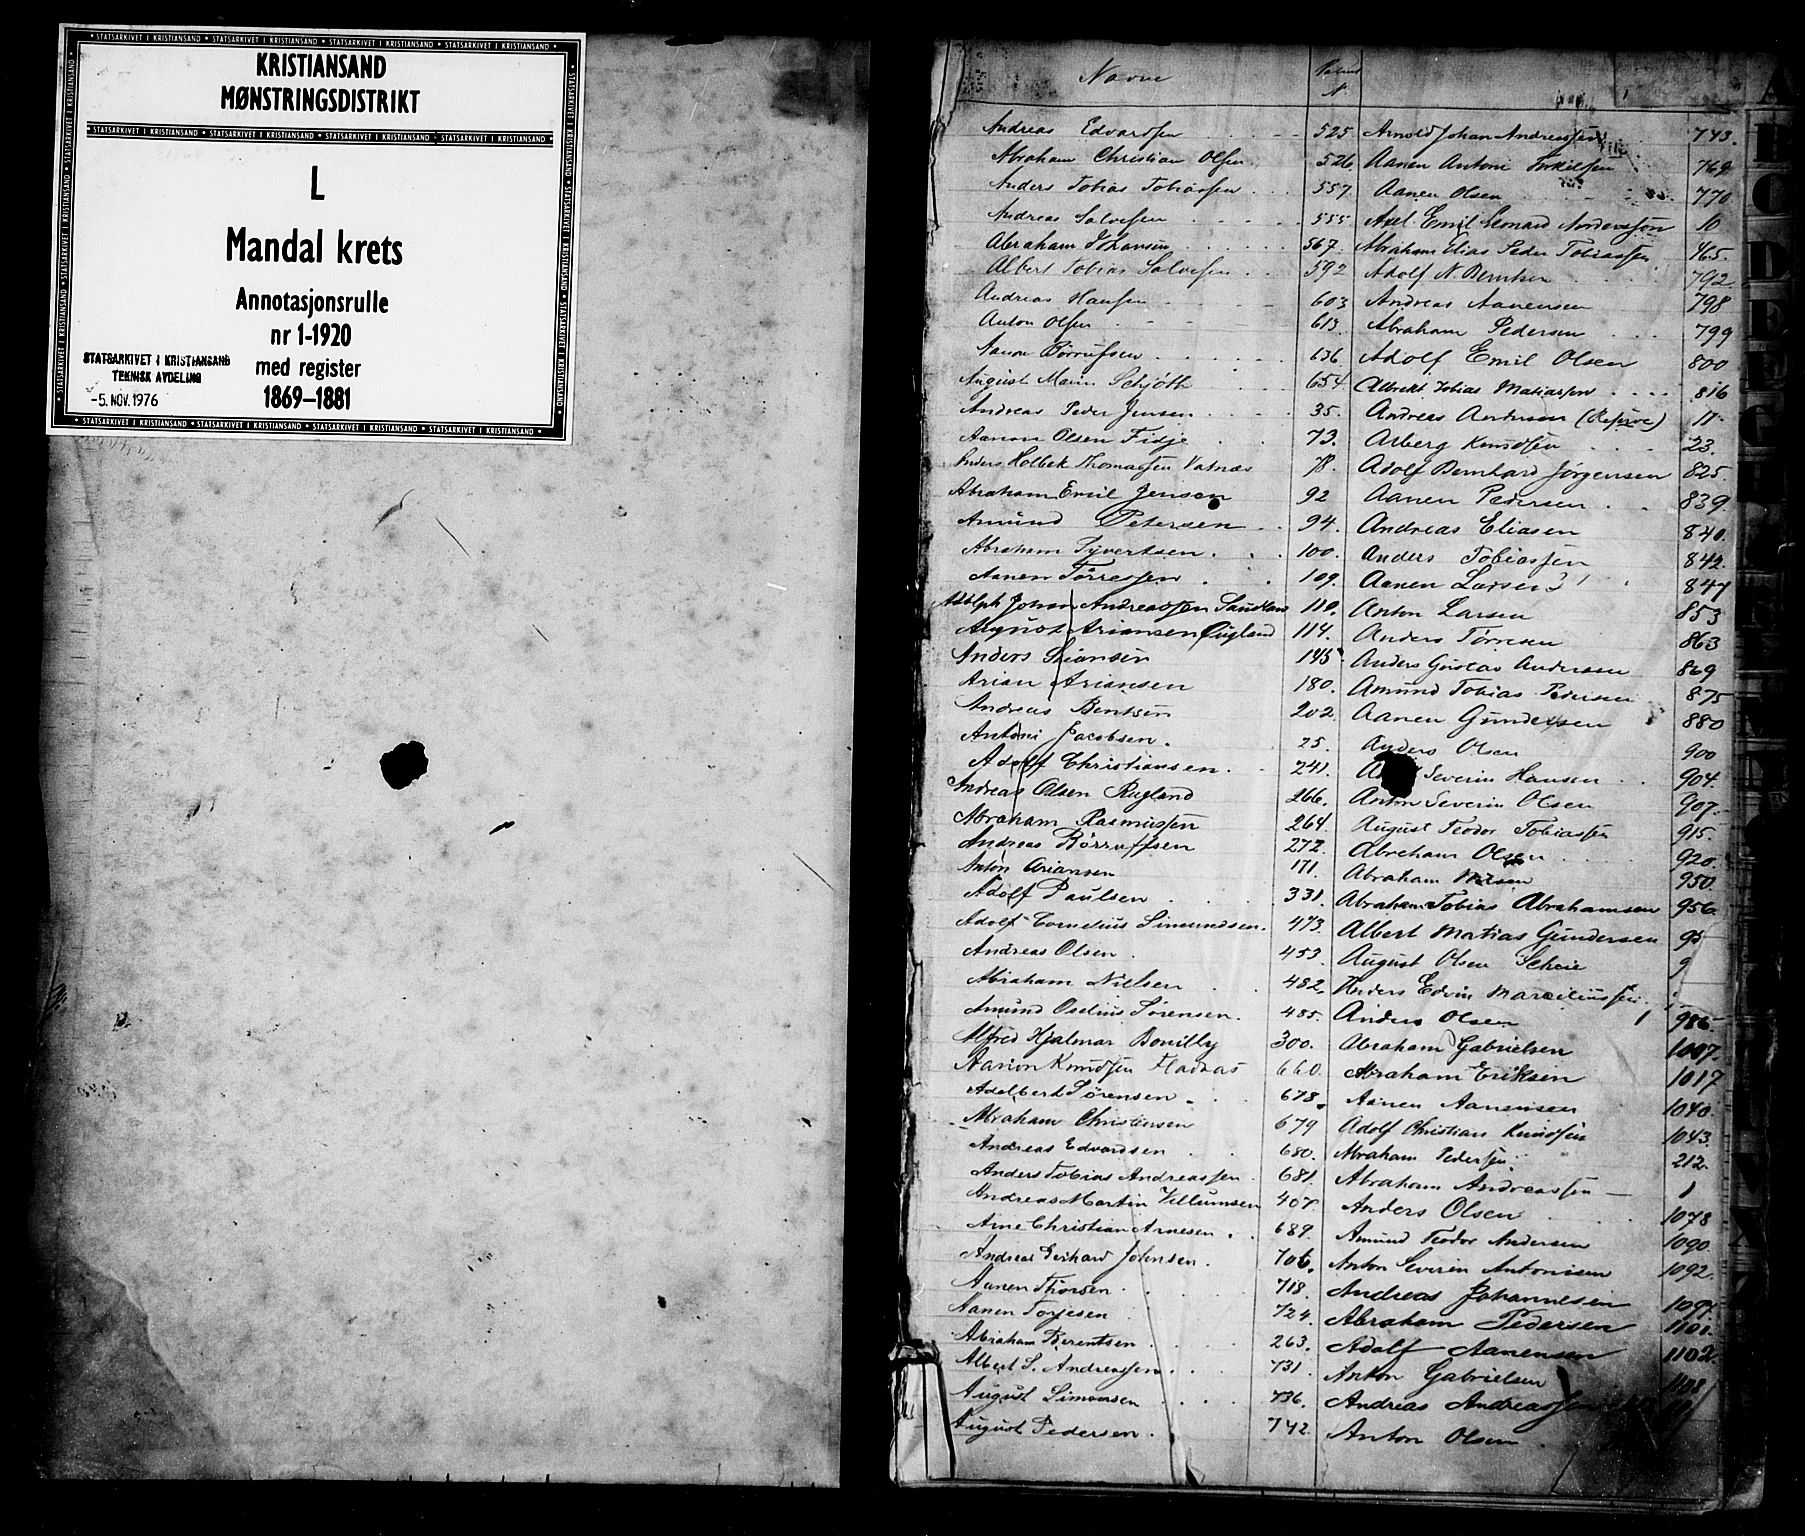 KRISTIANSAND
MØNSTRINGSDISTRIKT
L
Mandal krets
Annotasjonsrulle
nr 1-1920
med register
1869–1881
STATSARKIVET I KRISTIANSAND
TEKNISK AVDELING
-5. NOV. 1976
Navne
Andreas Edvardsen 525
Abraham Christian Olsen 526
Anders Tobias Tobiassen 557
Andreas Salvesen 555
Abraham Johansen 567
Albert Tobias Salvesen 592
Andreas Hansen 603
Anton Olsen 613
636
August Marin Schjøtt 654
Andreas Peder Jensen 35
Aanon Olsen Fidje 73
Anders Holbek Thomassen Vatnæs 78
Abraham Emil Jensen 92
Amund Petersen 94
Abraham Syvertsen 100
Aanen Tørressen 109
Adolph Johan Andreassen 110
August Ariansen 114
Anders 145
Arian Ariansen 180
Andreas Bentsen 202
Antoni Jacobsen 25
Adolf Christiansen 241
Andreas Olsen Rugland 266
Abraham Rasmussen 264
Andreas Børruffsen 272
Anton Ariansen 171
Adolf Paulsen 331
Adolf Cornelius Simundsen 473
Andreas Olsen 453
Abraham Nielsen 482
Amund Oselius Sørensen 485
Alfred Hjalmar Bonilly 300
Aanon Knudsen 660
Adelbert Sørensen 678
Abraham Christensen 679
Andreas Edvardsen 680
Anders Tobias Andreassen 681
Andreas Martin Villumsen 407
Arne Christian Arnesen 689
Andreas Gerhard Johnsen 706
Aanen Thorsen 718
Aanen Torjesen 724
Abraham Berentsen 263
Albert S. Andreassen 731
August Simonsen 736
August Pedersen 742
Arnold Johan Andreassen 743
Aanen Antoni 769
Aanen Olsen 770
Axel Emil Leonard 10
Abraham Elias Peder Tobiassen 465
Adolf N. Berntsen 792
Andreas Aanensen 798
Abraham Pedersen 799
Adolf Emil Olsen 800
Albrekt Tobias Matiassen 816
Andreas Andersen (Reserve) 11
Asberg Knudsen 23
Adolf Bernhard Jørgensen 825
Aanen Pedersen 839
Andreas Eliasen 840
Anders Tobiassen 842
Aanen Larsen 847
Anton Larsen 853
Anders Tørresen 863
Anders Gustav Andersen 869
Amund Tobias Pedersen 875
Aanen Gundersen 880
Anders Olsen 900
Severin Hansen 904
Anton Severin Olsen 907
August Teodor Tobiassen 915
Abraham Olsen 920
Abraham 950
Abraham Tobias Abrahamsen 956
Albert Matias Gundersen 95
August Olsen Scheie 9
Anders Edvin Marceliussen
Anders Olsen 986
Abraham Gabrielsen 1007
Abraham Eriksen 1017
Aanen Aanensen 1040
Adolf Christian Knudsen 1043
Abraham Pedersen 212
Abraham Andreassen 1
Anders Olsen 1078
Amund Teodor Andersen 1090
Anton Severin Antonisen 1092
Andreas Johannesen 1097
Abraham Pedersen 1101
Adolf Aanensen 1102
Anton Gabrielsen 1108
Andreas Andreassen
Anton Olsen